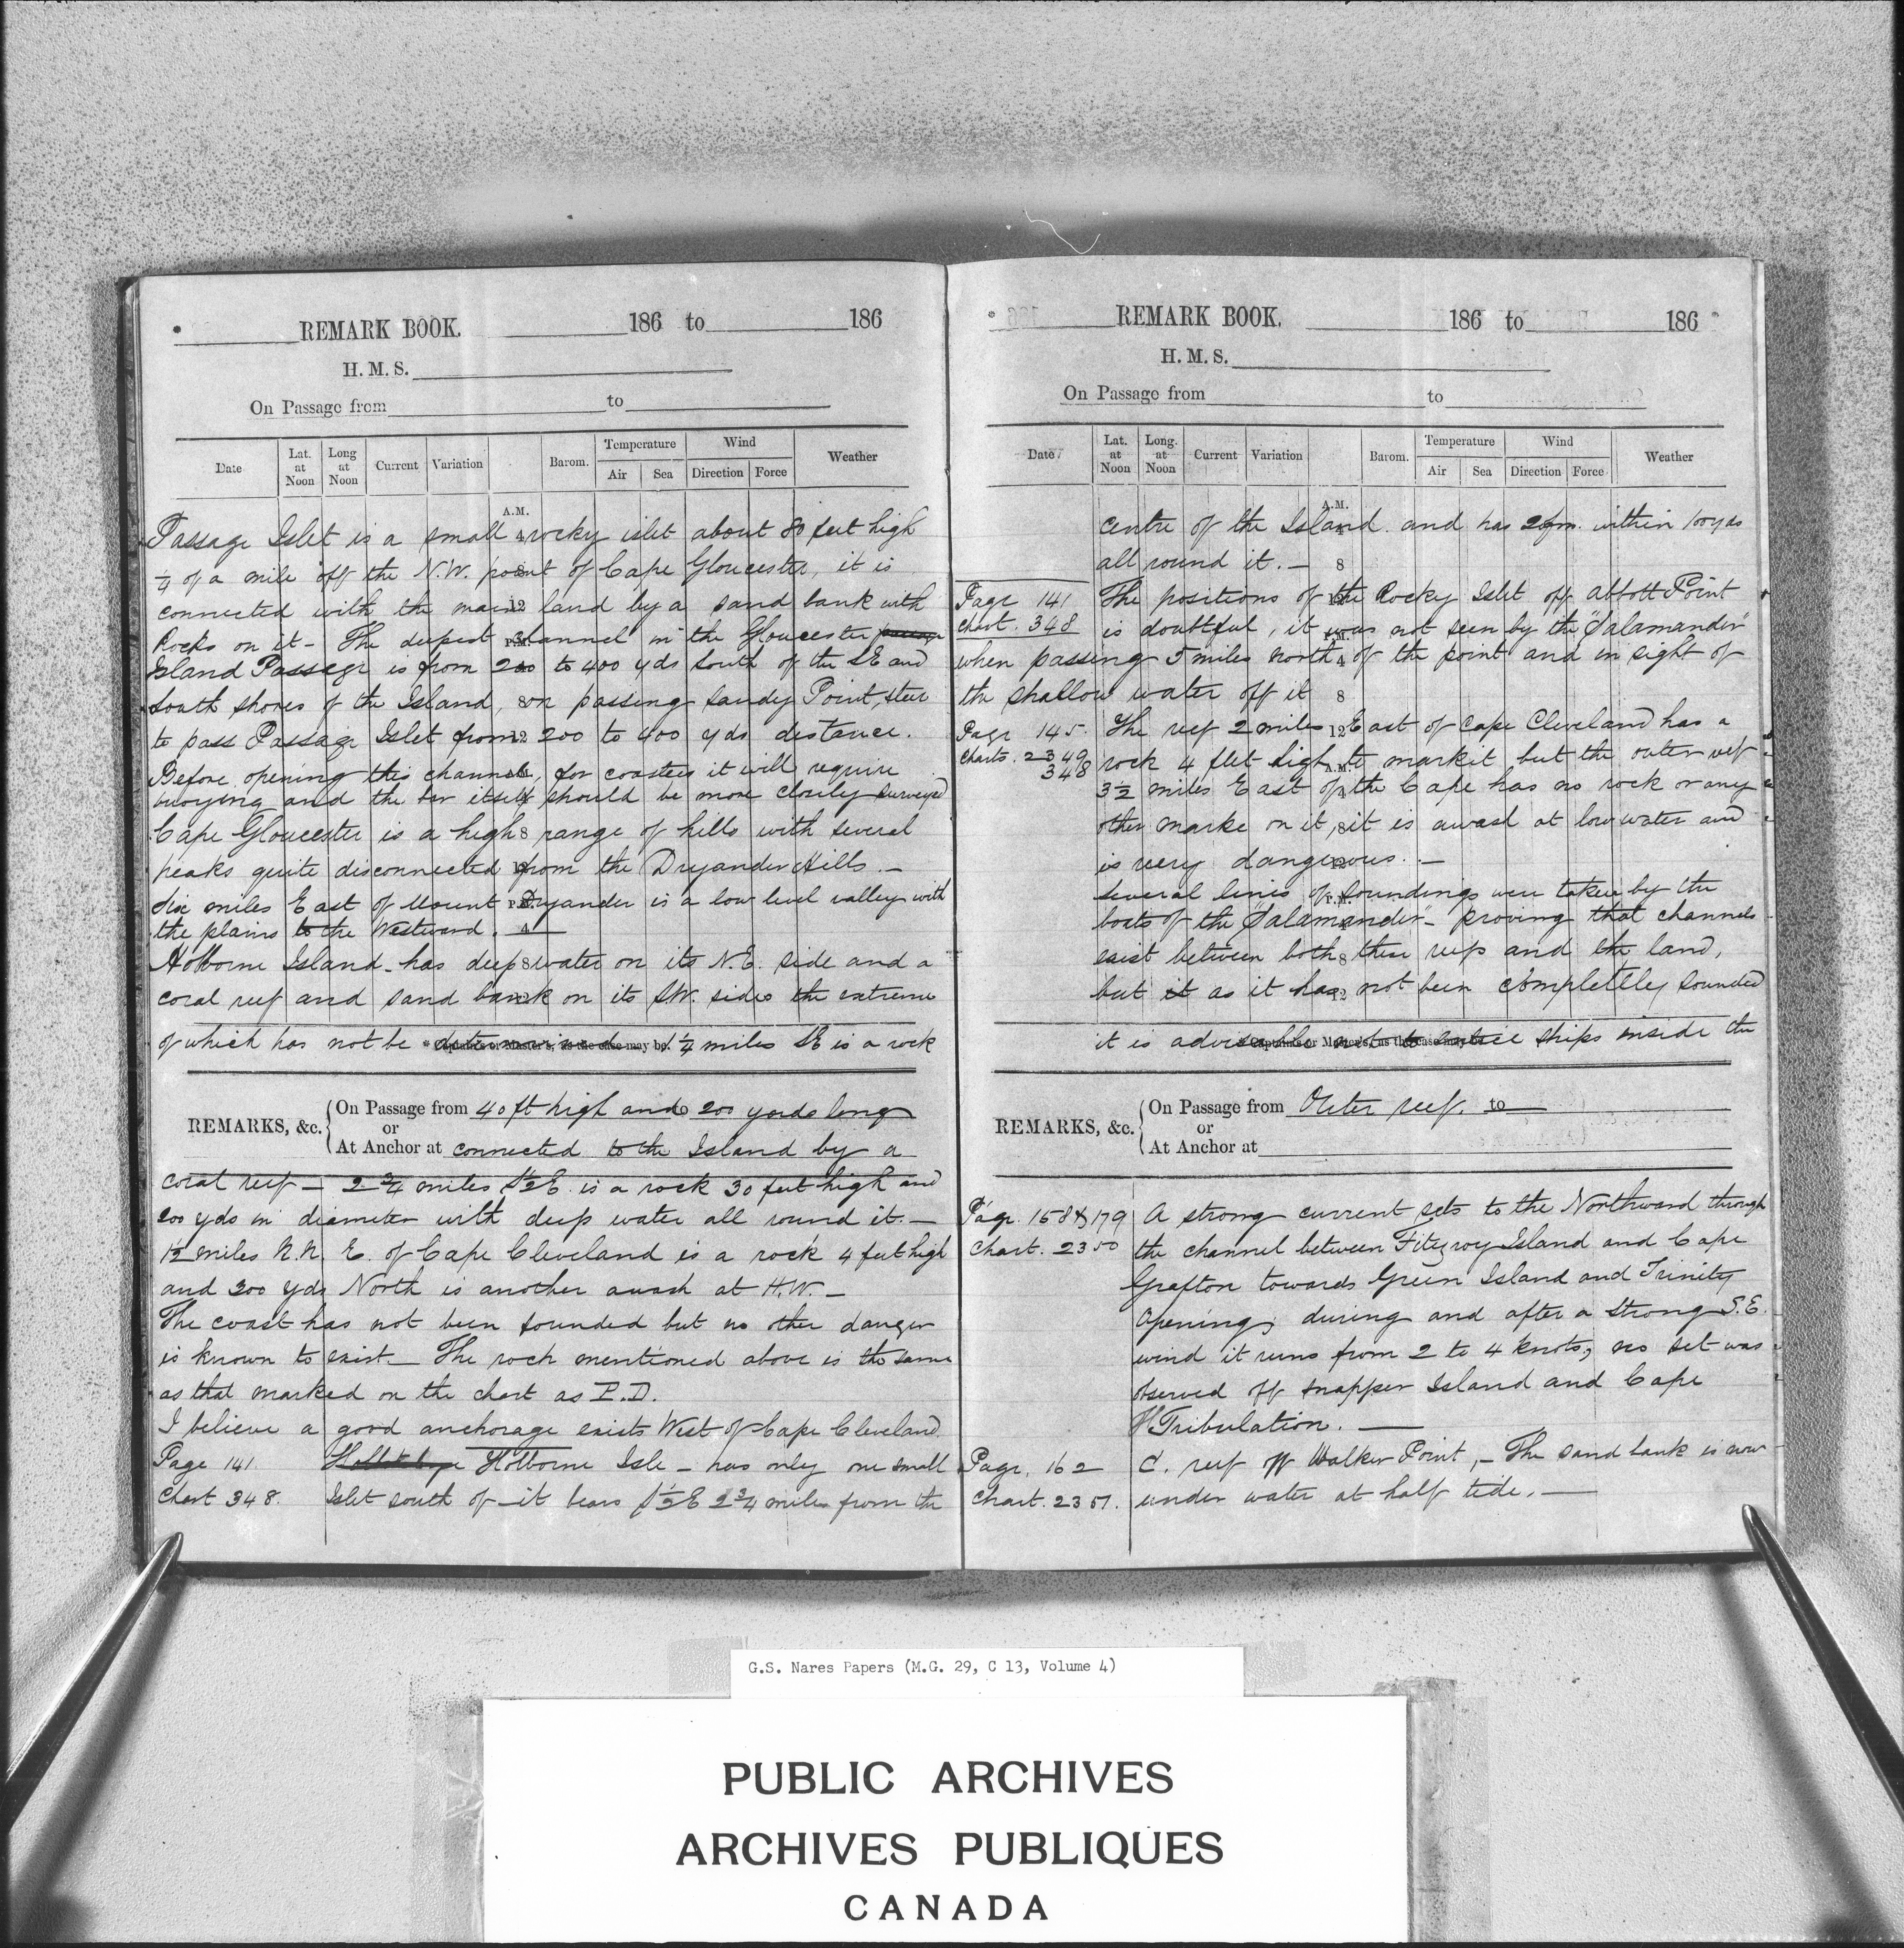 REMARK BOOK. 186 to 186
H. M. S.
On Passage from to
Date Lat. at Noon Long at Noon Current Variation Barom. Temperature Air Sea Wind Direction Force Weather
A.M.
Passage Islet is a small rocky islet about 80 feet high
¼ of a mile off the N.W. point of Cape Gloucester, it is
connected with the main land by a sand bank with
Rocks on it - The deepest channel in the Gloucester passage
Island Passage is from 200 to 400 yds South of the SE and
South shores of the Island, on passing Sandy Point, steer
to pass Passage Islet from 200 to 400 yds distance.
Before opening this channel, for coasters it will require
buoying and the bar itself should be more closely surveyed
Cape Gloucester is a high range of hills with several
peaks quite disconnected from the Dryander Hills. -
Six miles East of Mount Dryander is a low level valley with
the plains to the Westward. -
Holborne Island - has deep water on its N.E. side and a
coral reef and sand bank on its SW. side the extreme
of which has not be determined 1¼ miles SE is a rock
REMARKS, &c. On Passage from 40 ft high and 200 yards long
or
At Anchor at connected to the Island by a
coral reef - 2¾ miles S½E. is a rock 30 feet high and
200 yds in diameter with deep water all round it. -
1½ miles N.N.E. of Cape Cleveland is a rock 4 feet high
and 300 yds North is another awash at H.W. -
The coast has not been sounded but no other danger
is known to exist - The rock mentioned above is the same
as that marked on the chart as P.D.
I believe a good anchorage exists West of Cape Cleveland
Page 141. Holborne Isle - has only one small
Chart 348. Islet south of - it bears S½E 2¾ miles from the
REMARK BOOK. 186 to 186
H. M. S.
On Passage from to
Date Lat. at Noon Long. at Noon Current Variation Barom. Temperature Air Sea Wind Direction Force Weather
A.M.
centre of the Island and has 2 fm. within 100 yds
all round it. -
Page 141 The positions of the Rocky Islet off Abbott Point
Chart. 348 is doubtful, it was not seen by the "Salamander"
when passing 5 miles north of the point and in sight of
the shallow water off it
Page 145. The reef 2 miles East of Cape Cleveland has a
Charts. 2349 348 rock 4 feet high to mark it, but the outer reef
3½ miles East of the Cape has no rock or any
other marke on it, it is awash at low water and
is very dangerous. -
Several lines of soundings were taken by the
boats of the "Salamander" - proving that channels
exist between both these reefs and the land,
but it as it has not been completely sounded
it is advisable not to ships inside the
REMARKS, &c. On Passage from Outer reef. to
or
At Anchor at
Page. 158 & 179 A strong current sets to the Northward through
Chart. 2350 the channel between Fitzroy Island and Cape
Grafton towards Green Island and Trinity
Opening, during and after a strong S.E.
wind it runs from 2 to 4 knots, no set was
observed off Snapper Island and Cape
Tribulation. -
Page. 162 C. reef off Walker Point, - The sand bank is now
Chart. 2351. under water at half tide. -
G.S. Nares Papers (M.G. 29, C 13, Volume 4)
PUBLIC ARCHIVES
ARCHIVES PUBLIQUES
CANADA